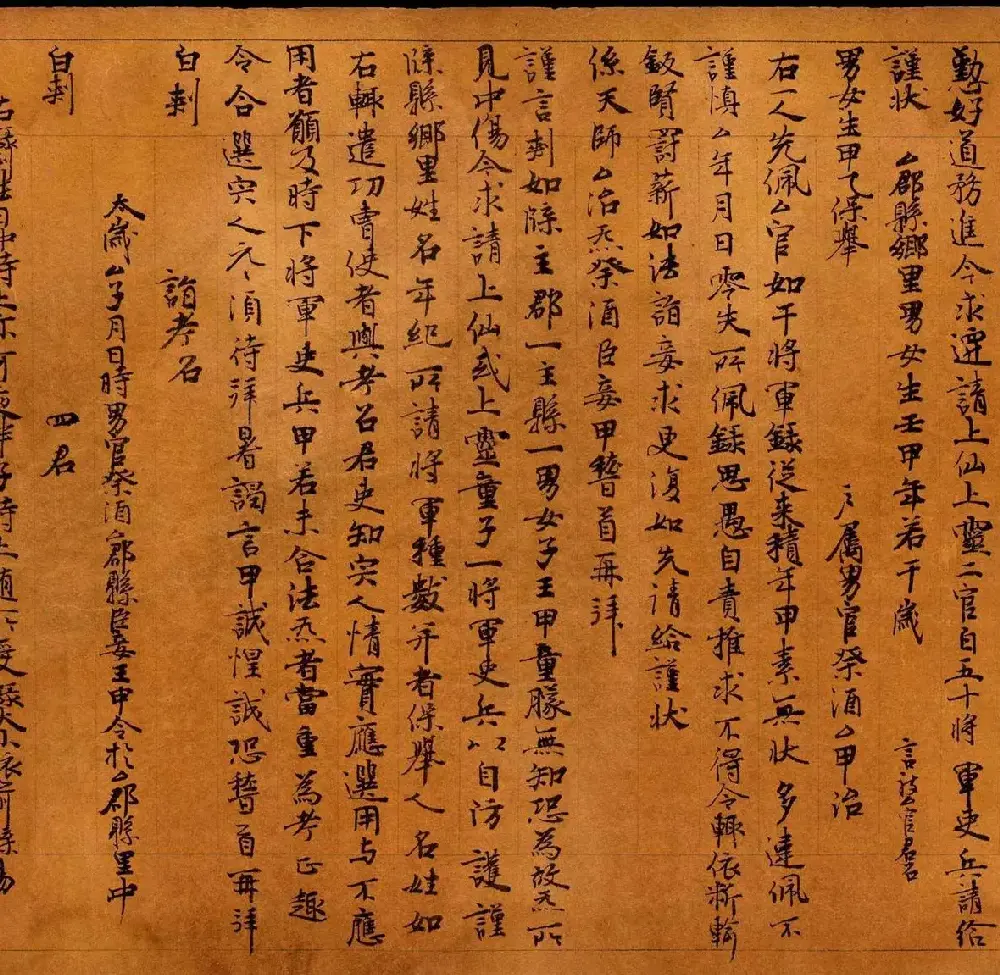 勤好道務進今求遷請上仙上靈二官自五十將軍吏兵請給
謹狀 厶郡縣鄉里男女生王甲年若干歲 言詣官君召
男女生甲乙保舉 户屬男官祭酒厶甲治
右一人先佩厶官如干將軍錄從来積年甲素無狀多違佩不
謹慎厶年月日零失所佩錄思愚自責推求不得令輒依斯輸
賢罸薪如法詣妾求更復如先請給謹狀
係天師厶治炁祭酒臣妾甲稽首再拜
謹言刾如牒主郡一主縣一男女子王甲童朦無知恐為故炁所
見中傷今求請上仙或上靈童子一將軍吏兵以自防護謹
牒縣鄉里姓名年紀所請將軍種數并者保舉人名姓如
右輒遣功曹使者與考召君吏知究人情實應選用与不應
用者願及時下將軍吏兵甲若未合法炁者當重為考正趣
令合選究人之湏待拜署謁言甲誠惶誠恐稽首再拜
白刾 詣考召
太歲厶子月日時男官祭酒厶郡縣臣妾王甲令於厶郡縣里中
白刾 四君